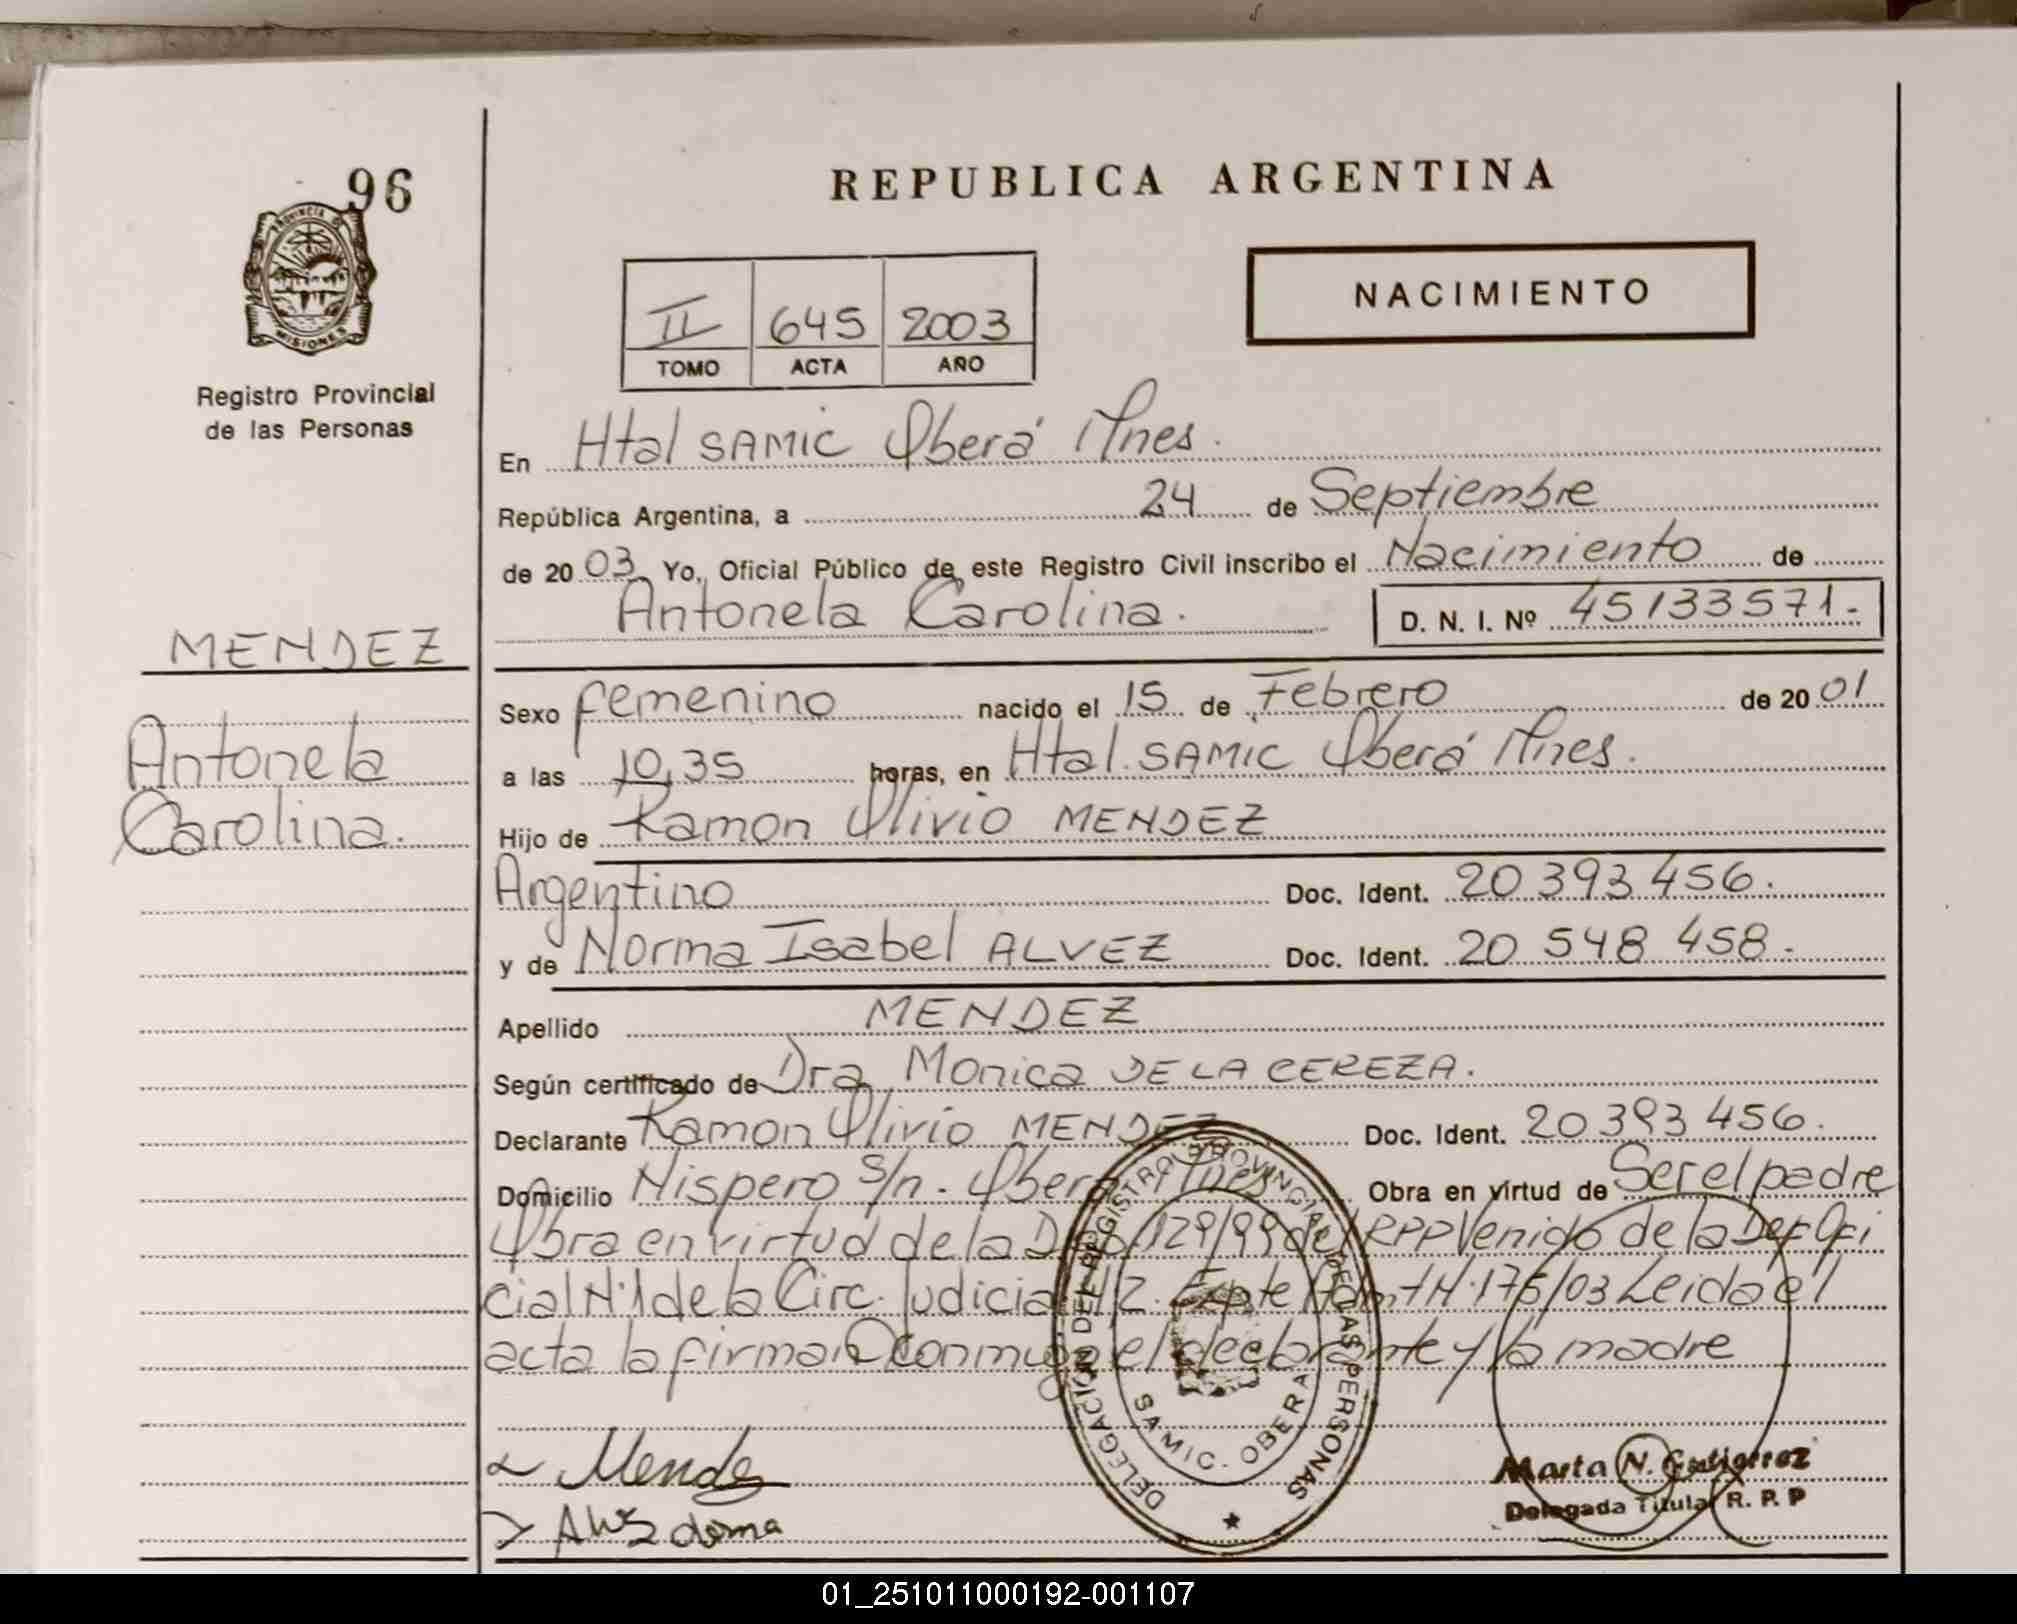 96
PROVINCIA DE
MISIONES
Registro Provincial
de las Personas
MENDEZ
Antonela
Carolina.
REPUBLICA ARGENTINA
II 645 2003
TOMO ACTA AÑO
NACIMIENTO
En Htal SAMIC Oberá Mnes.
República Argentina, a 24 de Septiembre
de 2003 Yo, Oficial Público de este Registro Civil inscribo el Nacimiento de
Antonela Carolina. D. N. I. Nº 45133571.-
Sexo femenino nacido el 15 de Febrero de 2001
a las 10,35 horas, en Htal. SAMIC Oberá Mnes.
Hijo de Ramon Olivio MENDEZ
Argentino Doc. Ident. 20 393 456.
y de Norma Isabel ALVEZ Doc. Ident. 20 548 458.-
Apellido MENDEZ
Según certificado de Dra Monica DE LA CEREZA.
Declarante Ramon Olivio MENDEZ Doc. Ident. 20 393 456.
Domicilio Nispero s/n. Oberá Mnes Obra en virtud de Ser el padre
Obra en virtud de la 129/99 del RPP Venido de la Def Ofi
cial Nº1 de la Circ. Judicial Expte Nº 175/03 Leido el
acta la firman conmigo el declarante y la madre
Mendez
DELEGACION DEL REGISTRO PROVINCIAL DE LAS PERSONAS
SAMIC. OBERA
Marta N. Gutierrez
Delegada Titular R. P. P
01_251011000192-001107